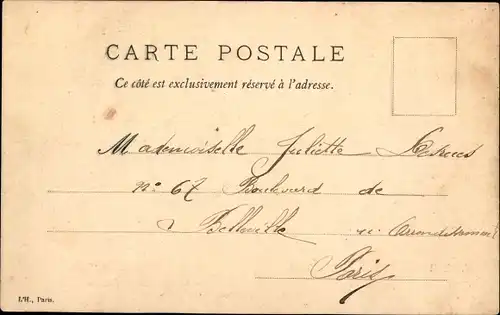 CARTE POSTALE
Ce côté est exclusivement réservé à l'adresse.
Mademoiselle Juliette
No 67 Boulevard de
Belleville
Paris
L'H., Paris.